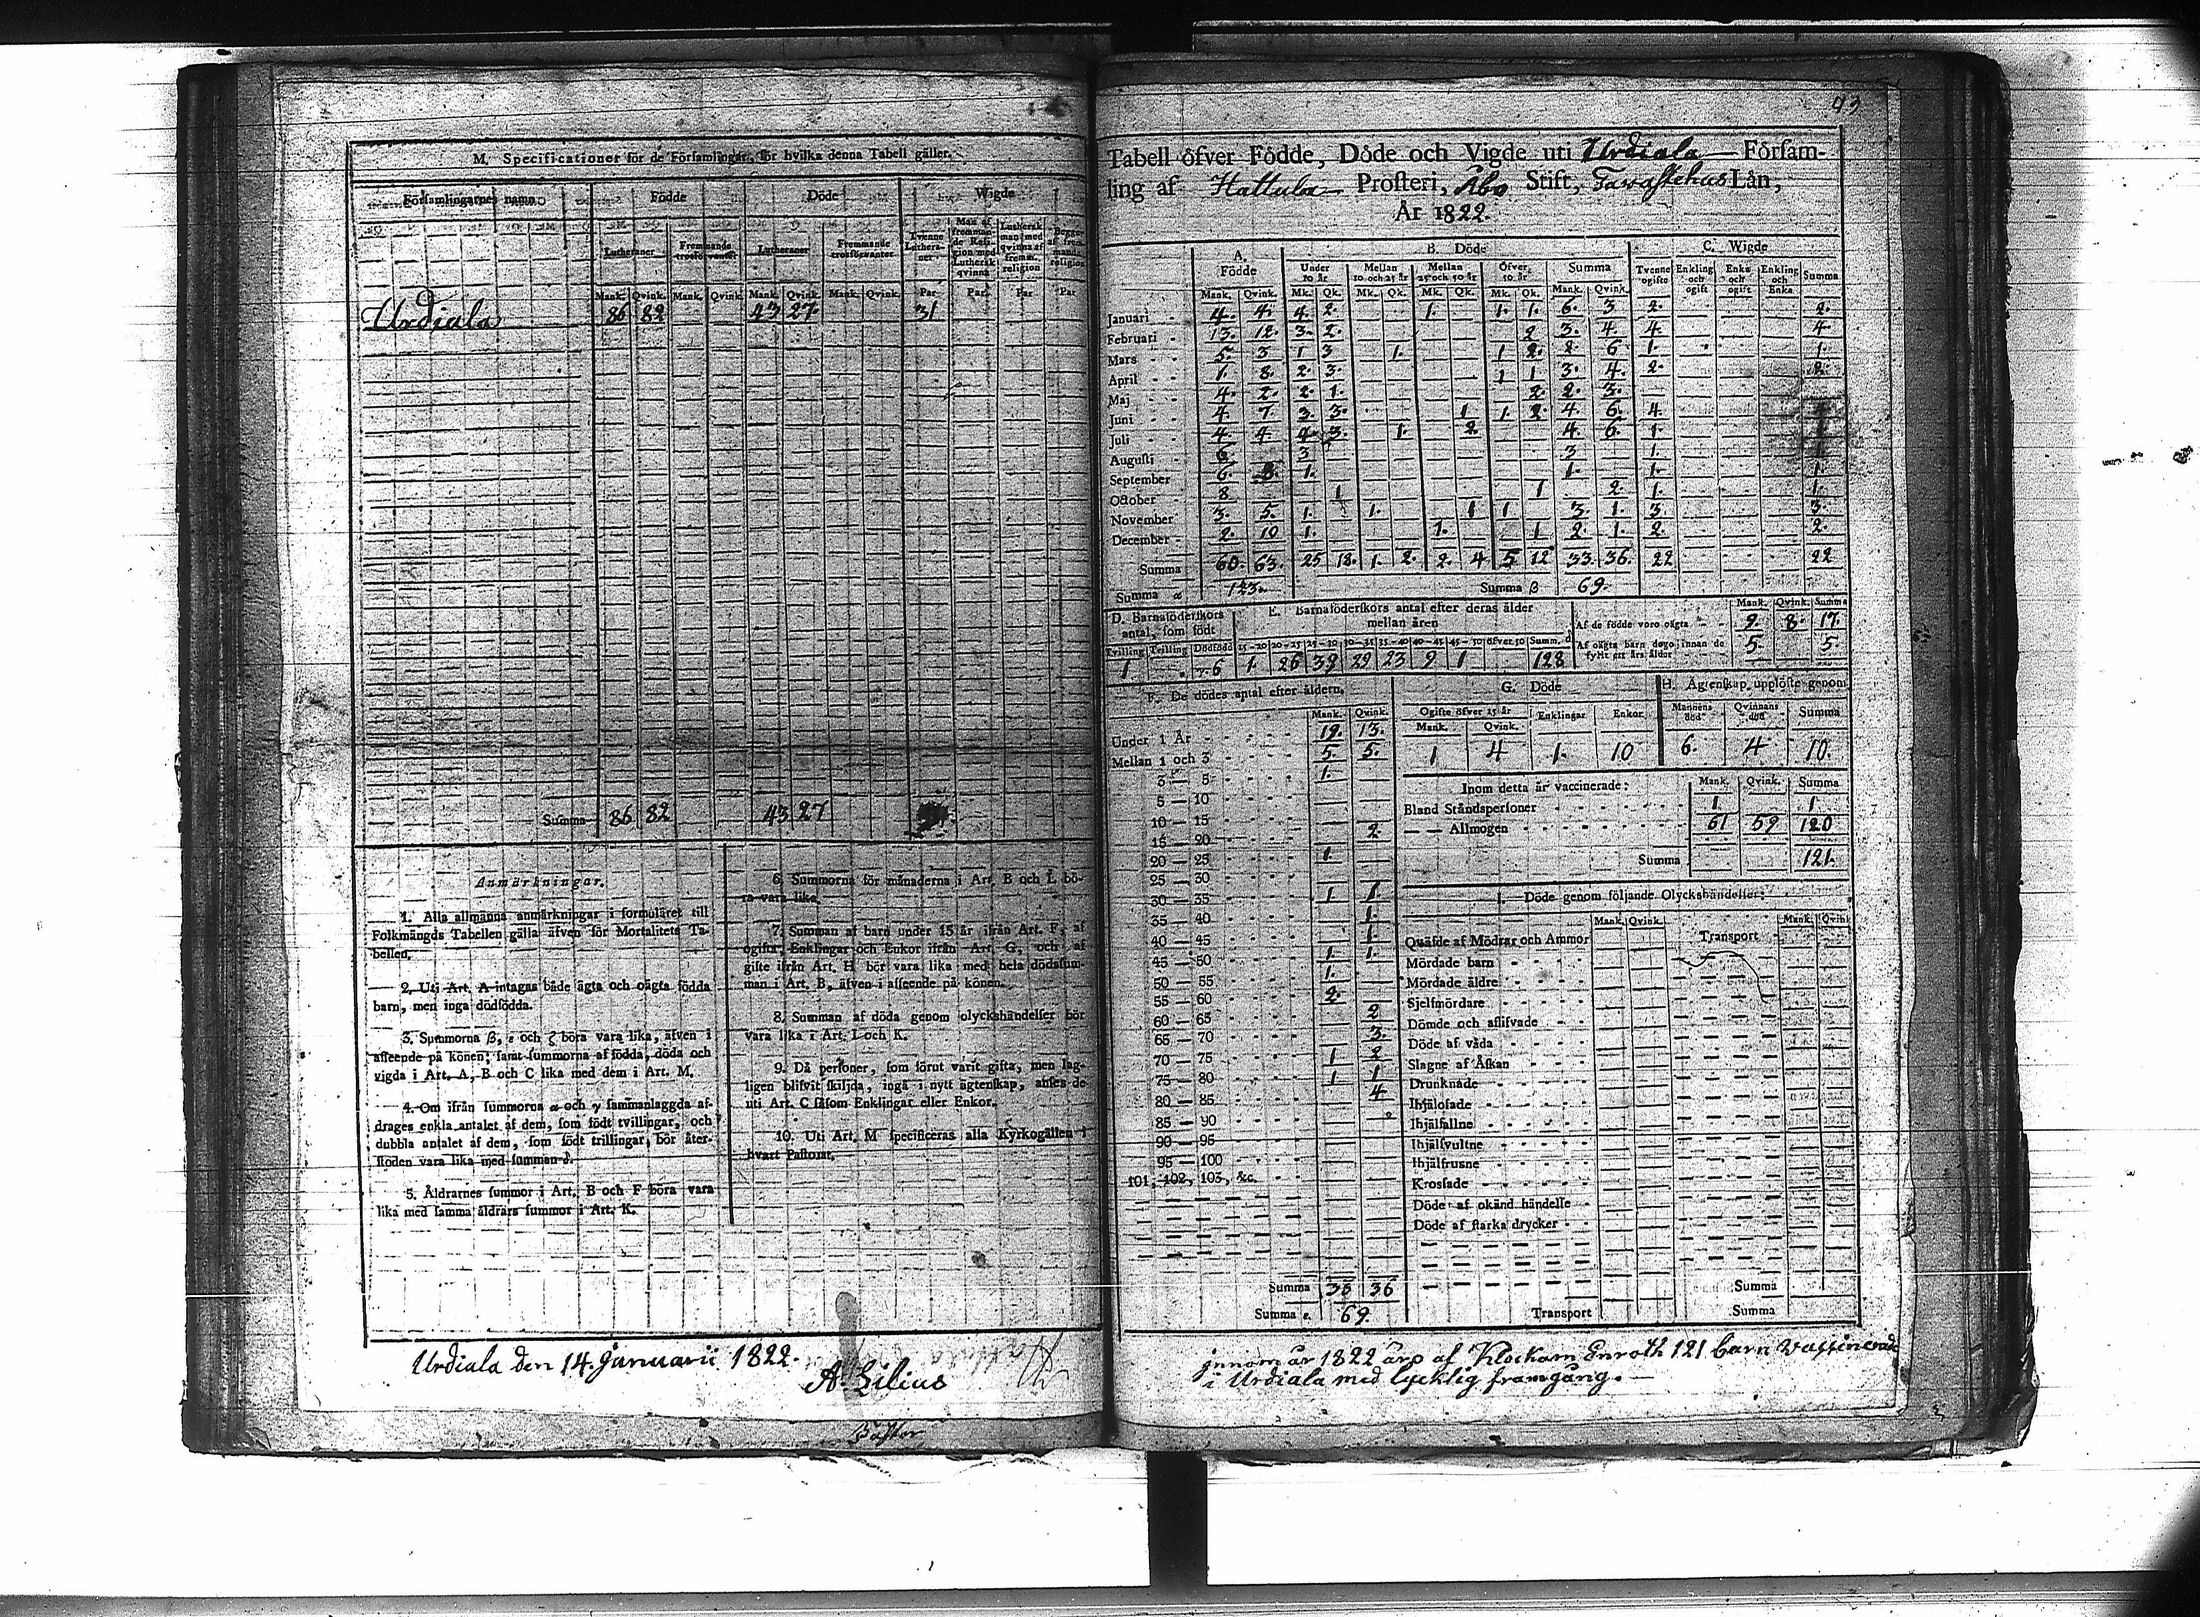 M. Specificationer för de Församlingar, för hvilka denna Tabell gäller.
Församlingarnes namn. Födde Döde Wigde
Lutheraner Fremmande trosförvanter Lutheraner Fremmande trosförvanter Tvenne Lutheraner Man af fremmande Religion med Luthersk qvinna Luthersk man med qvinna af fremm. religion Begge af fremmande religion
Mank. Qvink. Mank. Qvink. Mank. Qvink. Mank. Qvink. Par Par Par Par
Urdiala 86 82 43 27. 31
Summa 86 82 43 27
Anmärkningar.
1. Alla allmänna anmärkningar i formuläret till
Folkmängds Tabellen gälla äfven för Mortalitets Ta-
bellen.
2. Uti Art. A intagas både ägta och oägta födda
barn, men inga dödfödda.
3. Summorna β, ε och ζ böra vara lika, äfven i
afseende på könen; samt summorna af födda, döda och
vigda i Art. A, B och C lika med dem i Art. M.
4. Om ifrån summorna α och γ sammanlaggda af-
drages enkla antalet af dem, som födt tvillingar, och
dubbla antalet af dem, som födt trillingar, bör åter-
stoden vara lika med summan δ.
5. Åldrarnes summor i Art. B och F böra vara
lika med samma åldrars summor i Art. K.
6. Summorna för månaderna i Art. B och L bö-
ra vara lika.
7. Summan af barn under 15 år ifrån Art. F, af
ogifta, Enklingar och Enkor ifrån Art. G, och af
gifte ifrån Art. H bör vara lika med hela dödssum-
man i Art. B, äfven i afseende på könen.
8. Summan af döda genom olyckshändelser bör
vara lika i Art. I och K.
9. Då personer, som förut varit gifta, men lag-
ligen blifvit skiljda, ingå i nytt ägtenskap, anses de
uti Art. C såsom Enklingar eller Enkor.
10. Uti Art. M specificeras alla Kyrkogällen i
hvart Pastorat.
Urdiala den 14. Januarii 1822.
A. Lilius
Pastor
93
Tabell öfver Födde, Döde och Vigde uti Urdiala Församling
af Hattula Prosteri, Åbo Stift, Tavastehus Län,
År 1822.
A. Födde B. Döde C. Wigde
Under 10 år Mellan 10 och 25 år Mellan 25 och 50 år Öfver 50 år Summa Tvenne ogifte Enkling och ogift Enka och ogift Enkling och Enka Summa
Mank. Qvink. Mk. Qk. Mk. Qk. Mk. Qk. Mk. Qk. Mank. Qvink.
Januari 4. 4. 4. 2. 1. 1. 1. 6. 3 2. 2.
Februari 13. 12. 3. 2. 2 3. 4. 4. 4.
Mars 5. 3 1 3 1. 1 2. 2. 6 1. 1.
April 1. 8. 2. 3. 1 1 3. 4. 2. 2.
Maj 4. 2. 2. 1. 2. 2. 3.
Juni 4. 7. 3. 3. 1 1. 2. 4. 6. 4.
Juli 4. 4. 4. 3. 1. 2. 4. 6. 1.
Augusti 6. 3 3 1.
September 6. 8. 1. 1. 1. 1.
October 8 1 1 2. 1. 1.
November 3. 5. 1. 1. 1 1 3. 1. 3. 3.
December 2. 10 1. 1. 1 2. 1. 2. 2.
Summa 60. 63. 25 18. 1. 2. 2. 4 5 12 33. 36. 22 22
Summa α 123. Summa β 69.
D. Barnaföderskors antal, som födt
Tvilling Trilling Dödfödd
1 γ. 6
E. Barnaföderskors antal efter deras ålder mellan åren
15-20 20-25 25-30 30-35 35-40 40-45 45-50 öfver 50 Summ. δ
1. 26 39 29 23 9 1 128
Mank. Qvink. Summa
Af de födde voro oägta 9. 8. 17.
Af oägta barn dogo innan de fyllt ett års ålder 5. 5.
F. De dödes antal efter åldern.
Mank. Qvink.
Under 1 År 19. 13.
Mellan 1 och 3 5. 5.
3 — 5 1.
5 — 10
10 — 15
15 — 20 2.
20 — 25 1.
25 — 30
30 — 35 1 1.
35 — 40 1.
40 — 45 1.
45 — 50 1. 1.
50 — 55 1.
55 — 60 2.
60 — 65 2
65 — 70 3.
70 — 75 1 2
75 — 80 1 1
80 — 85 4
85 — 90
90 — 95
95 — 100
101, 102, 103, &c.
Summa 33 36
Summa ε. 69.
G. Döde
Ogifte öfver 15 år Enklingar Enkor
Mank. Qvink.
1 4 1. 10
H. Ägtenskap upplöste genom
Mannens död Qvinnans död Summa
6. 4 10.
Inom detta år vaccinerade: Mank. Qvink. Summa
Bland Ståndspersoner 1 1
— — Allmogen 61 59 120
Summa 121.
I. Döde genom följande Olyckshändelser:
Mank. Qvink. Mank. Qvink.
Quäfde af Mödrar och Ammor Transport
Mördade barn
Mördade äldre
Sjelfmördare
Dömde och aflifvade
Döde af våda
Slagne af Åskan
Drunknade
Ihjälosade
Ihjälfallne
Ihjälsvultne
Ihjälfrusne
Krossade
Döde af okänd händelse
Döde af starka drycker
Summa
Transport Summa
innom år 1822 äro af Klockarn Enroth 121 barn vassinerade
i Urdiala med lycklig framgång.